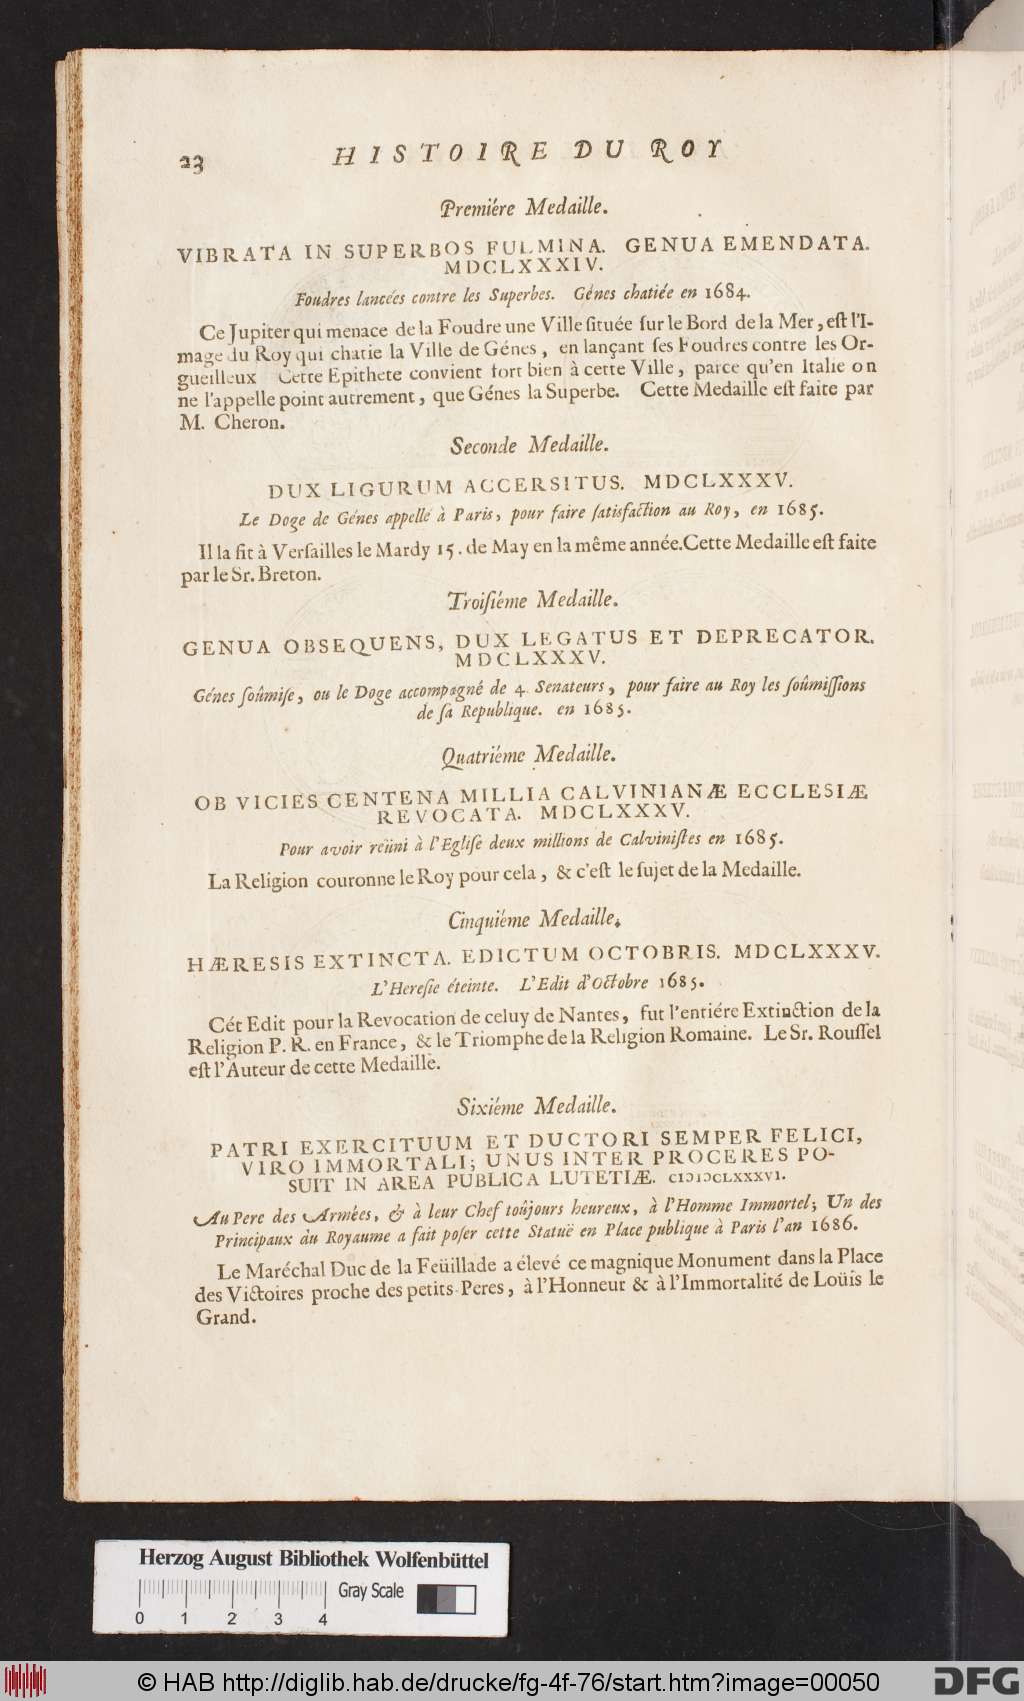 23 HISTOIRE DU ROY
Premiére Medaille.
VIBRATA IN SUPERBOS FULMINA. GENUA EMENDATA.
MDCLXXXIV.
Foudres lancées contre les Superbes. Génes chatiée en 1684.
Ce Jupiter qui menace de la Foudre une Ville ſituée ſur le Bord de la Mer, eſt l'I-
mage du Roy qui chatie la Ville de Génes, en lançant ſes Foudres contre les Or-
gueilleux Cette Epithete convient fort bien à cette Ville, parce qu'en Italie on
ne l'appelle point autrement, que Génes la Superbe. Cette Medaille eſt faite par
M. Cheron.
Seconde Medaille.
DUX LIGURUM ACCERSITUS. MDCLXXXV.
Le Doge de Génes appellé à Paris, pour faire ſatisfaction au Roy, en 1685.
Il la fit à Verſailles le Mardy 15. de May en la même année. Cette Medaille eſt faite
par le Sr. Breton.
Troiſiéme Medaille.
GENUA OBSEQUENS, DUX LEGATUS ET DEPRECATOR.
MDCLXXXV.
Génes ſoûmiſe, ou le Doge accompagné de 4 Senateurs, pour faire au Roy les ſoûmiſſions
de ſa Republique. en 1685.
Quatriéme Medaille.
OB VICIES CENTENA MILLIA CALVINIANÆ ECCLESIÆ
REVOCATA. MDCLXXXV.
Pour avoir reüni à l'Egliſe deux millions de Calviniſtes en 1685.
La Religion couronne le Roy pour cela, & c'eſt le ſujet de la Medaille.
Cinquiéme Medaille.
HÆRESIS EXTINCTA. EDICTUM OCTOBRIS. MDCLXXXV.
L'Hereſie éteinte. L'Edit d'Octobre 1685.
Cét Edit pour la Revocation de celuy de Nantes, fut l'entiére Extinction de la
Religion P. R. en France, & le Triomphe de la Religion Romaine. Le Sr. Rouſſel
eſt l'Auteur de cette Medaille.
Sixiéme Medaille.
PATRI EXERCITUUM ET DUCTORI SEMPER FELICI,
VIRO IMMORTALI; UNUS INTER PROCERES PO-
SUIT IN AREA PUBLICA LUTETIÆ. CIↃIↃCLXXXVI.
Au Pere des Armées, & à leur Chef toûjours heureux, à l'Homme Immortel; Un des
Principaux du Royaume a fait poſer cette Statuë en Place publique à Paris l'an 1686.
Le Maréchal Duc de la Feüillade a élevé ce magnique Monument dans la Place
des Victoires proche des petits Peres, à l'Honneur & à l'Immortalité de Loüis le
Grand.
Herzog August Bibliothek Wolfenbüttel
Gray Scale
0 1 2 3 4
© HAB http://diglib.hab.de/drucke/fg-4f-76/start.htm?image=00050
DFG